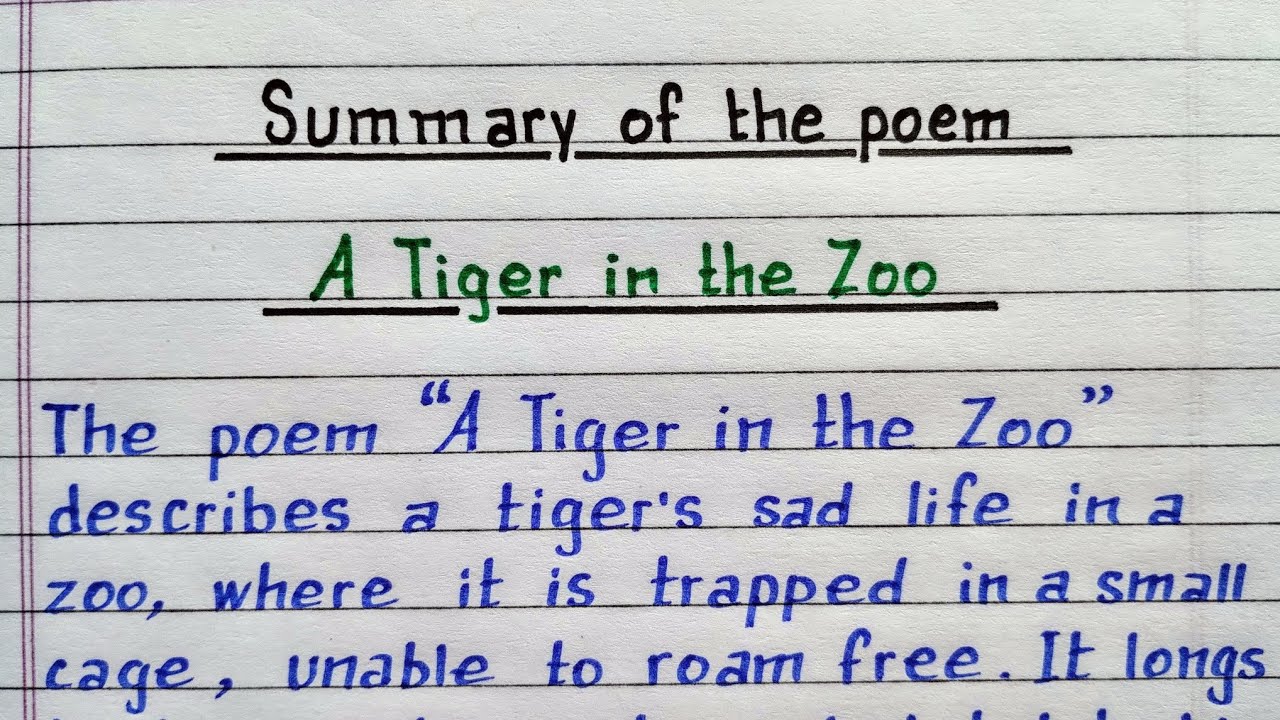 Summary of the poem
A Tiger in the Zoo
The poem “A Tiger in the Zoo”
describes a tiger's sad life in a
zoo, where it is trapped in a small
cage, unable to roam free. It longs